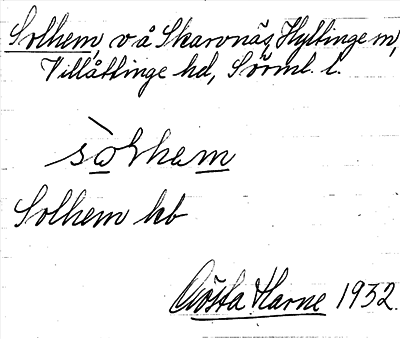 Solhem, v å Skarvnäs, Hyltinge sn,
Villåttinge hd, Sörml. l.
sòlhem
Solhem kb
Gösta Harne 1932.